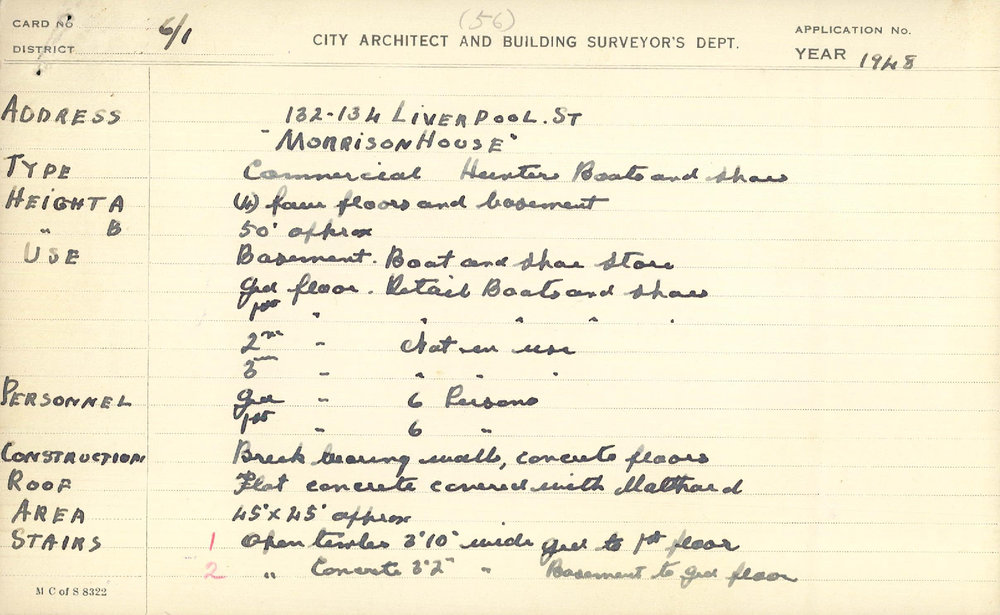 (56)
CARD No 6/1 CITY ARCHITECT AND BUILDING SURVEYOR'S DEPT. APPLICATION No.
DISTRICT YEAR 1948
ADDRESS 132-134 LIVERPOOL. ST
"MORRISON HOUSE"
TYPE Commercial Hunters Boots and shoes
HEIGHT A (4) four floors and basement
" B 50' approx
USE Basement. Boot and shoe store
Grd floor. Retail Boots and shoes
1st " " " " "
2nd " Not in use
3rd " " " "
PERSONNEL Grd " 6 Persons
1st " 6 "
CONSTRUCTION Brick bearing walls, concrete floors
ROOF Flat concrete covered with Malthoid
AREA 45' x 45' approx
STAIRS 1 Open timber 3'10" wide grd to 1st floor
2 " Concrete 3'2" " Basement to grd floor
M C of S 8322